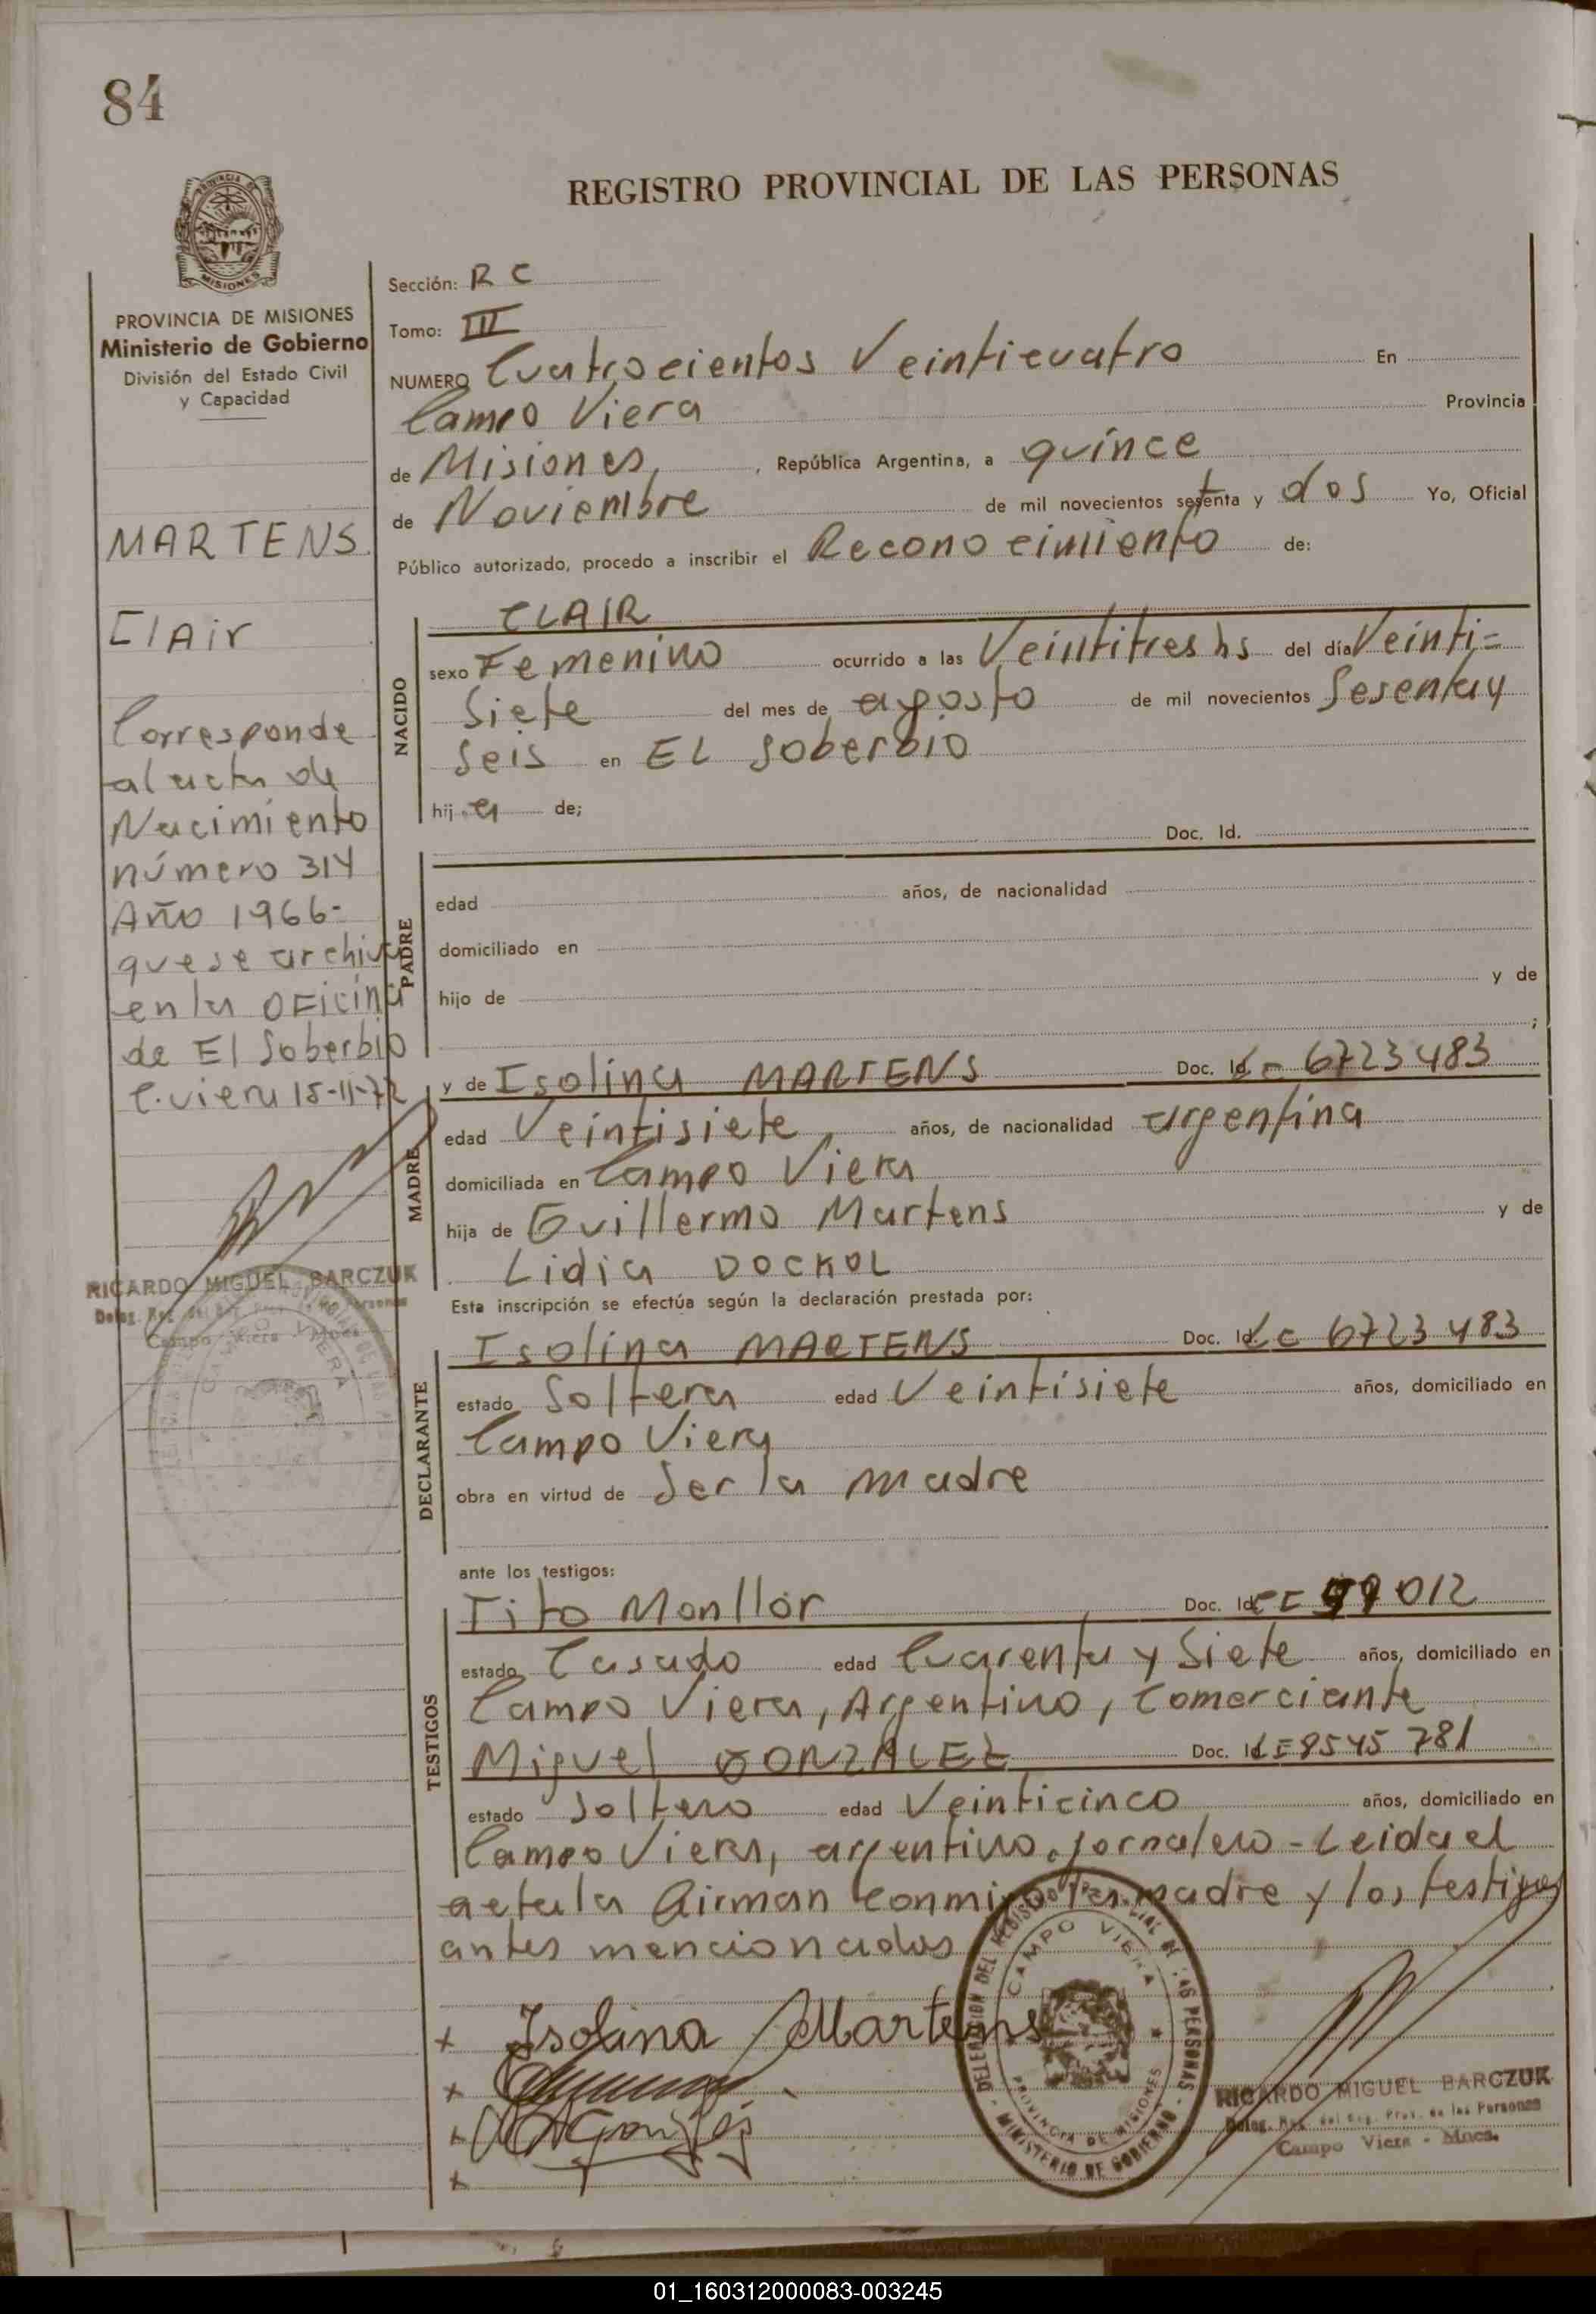 84
REGISTRO PROVINCIAL DE LAS PERSONAS
MISIONES
PROVINCIA DE MISIONES
Ministerio de Gobierno
División del Estado Civil
y Capacidad
MARTENS
Clair
Corresponde
al acta de
Nacimiento
número 314
Año 1966-
que se archiva
en la Oficina
de El Soberbio
C. Viera 15-11-72
RICARDO MIGUEL BARCZUK
Campo Viera - Mnes.
Sección: R C
Tomo: III
NUMERO Cuatrocientos Veinticuatro En
Campo Viera Provincia
de Misiones, , República Argentina, a quince
de Noviembre de mil novecientos setenta y dos Yo, Oficial
Público autorizado, procedo a inscribir el Reconocimiento de:
NACIDO
CLAIR
sexo Femenino ocurrido a las Veintitres hs del día Veinti=
Siete del mes de agosto de mil novecientos Sesenta y
Seis en EL Soberbio
hij a de;
Doc. Id.
PADRE
edad años, de nacionalidad
domiciliado en
hijo de y de
;
MADRE
y de Isolina MARTENS Doc. Id. LC 6723483
edad Veintisiete, años, de nacionalidad argentina
domiciliada en Campo Viera
hija de Guillermo Martens y de
Lidia DOCKOL
Esta inscripción se efectúa según la declaración prestada por:
DECLARANTE
Isolina MARTENS Doc. Id. LC 6723483
estado Soltera edad Veintisiete años, domiciliado en
Campo Viera
obra en virtud de Ser la madre
ante los testigos:
TESTIGOS
Tito Monllor Doc. Id. 012
estado Casado edad Cuarenta y Siete años, domiciliado en
Campo Viera, Argentino, Comerciante
Miguel GONZALEZ Doc. Id. LE 8545 781
estado Soltero edad Veinticinco años, domiciliado en
Campo Viera, argentino, jornalero - Leida el
acta la firman conmigo la madre y los testigos
antes mencionados
x Isolina Martens
x
x
x
DELEGACION DEL REGISTRO PROVINCIAL DE LAS PERSONAS
CAMPO VIERA
PROVINCIA DE MISIONES
- MINISTERIO DE GOBIERNO -
RICARDO MIGUEL BARCZUK
Deleg. Res. del Reg. Prov. de las Personas
Campo Viera - Mnes.
01_160312000083-003245